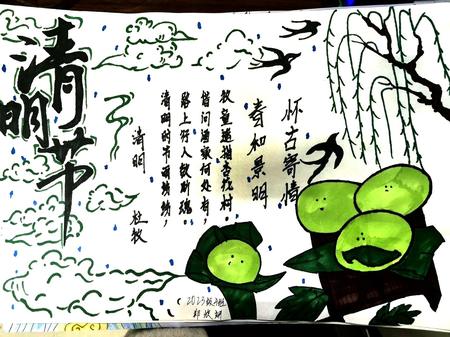 清明节
清明 杜牧
清明时节雨纷纷，
路上行人欲断魂
借问酒家何处有，
牧童遥指杏花村
春和景明
怀古寄情
2023级